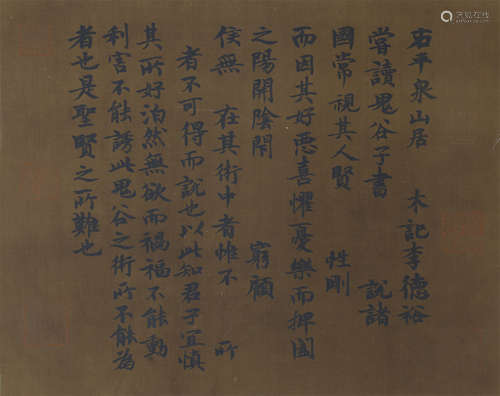 右平泉山居　木記李德裕
嘗讀鬼谷子書　說諸
國常視其人賢　性剛
而因其好惡喜懼憂樂而捭闔
之陽開陰閉　窮顧
侯無　在其術中者惟不　所
者不可得而說也以此知君子宜慎
其所好泊然無欲而禍福不能動
利害不能誘此鬼谷之術所不能為
者也是聖賢之所難也